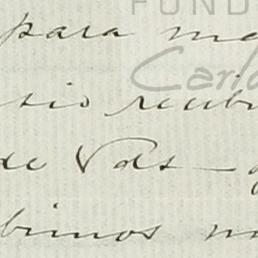 FUND
para me
Carlo
sio recibi
de Vds — 
bimos n